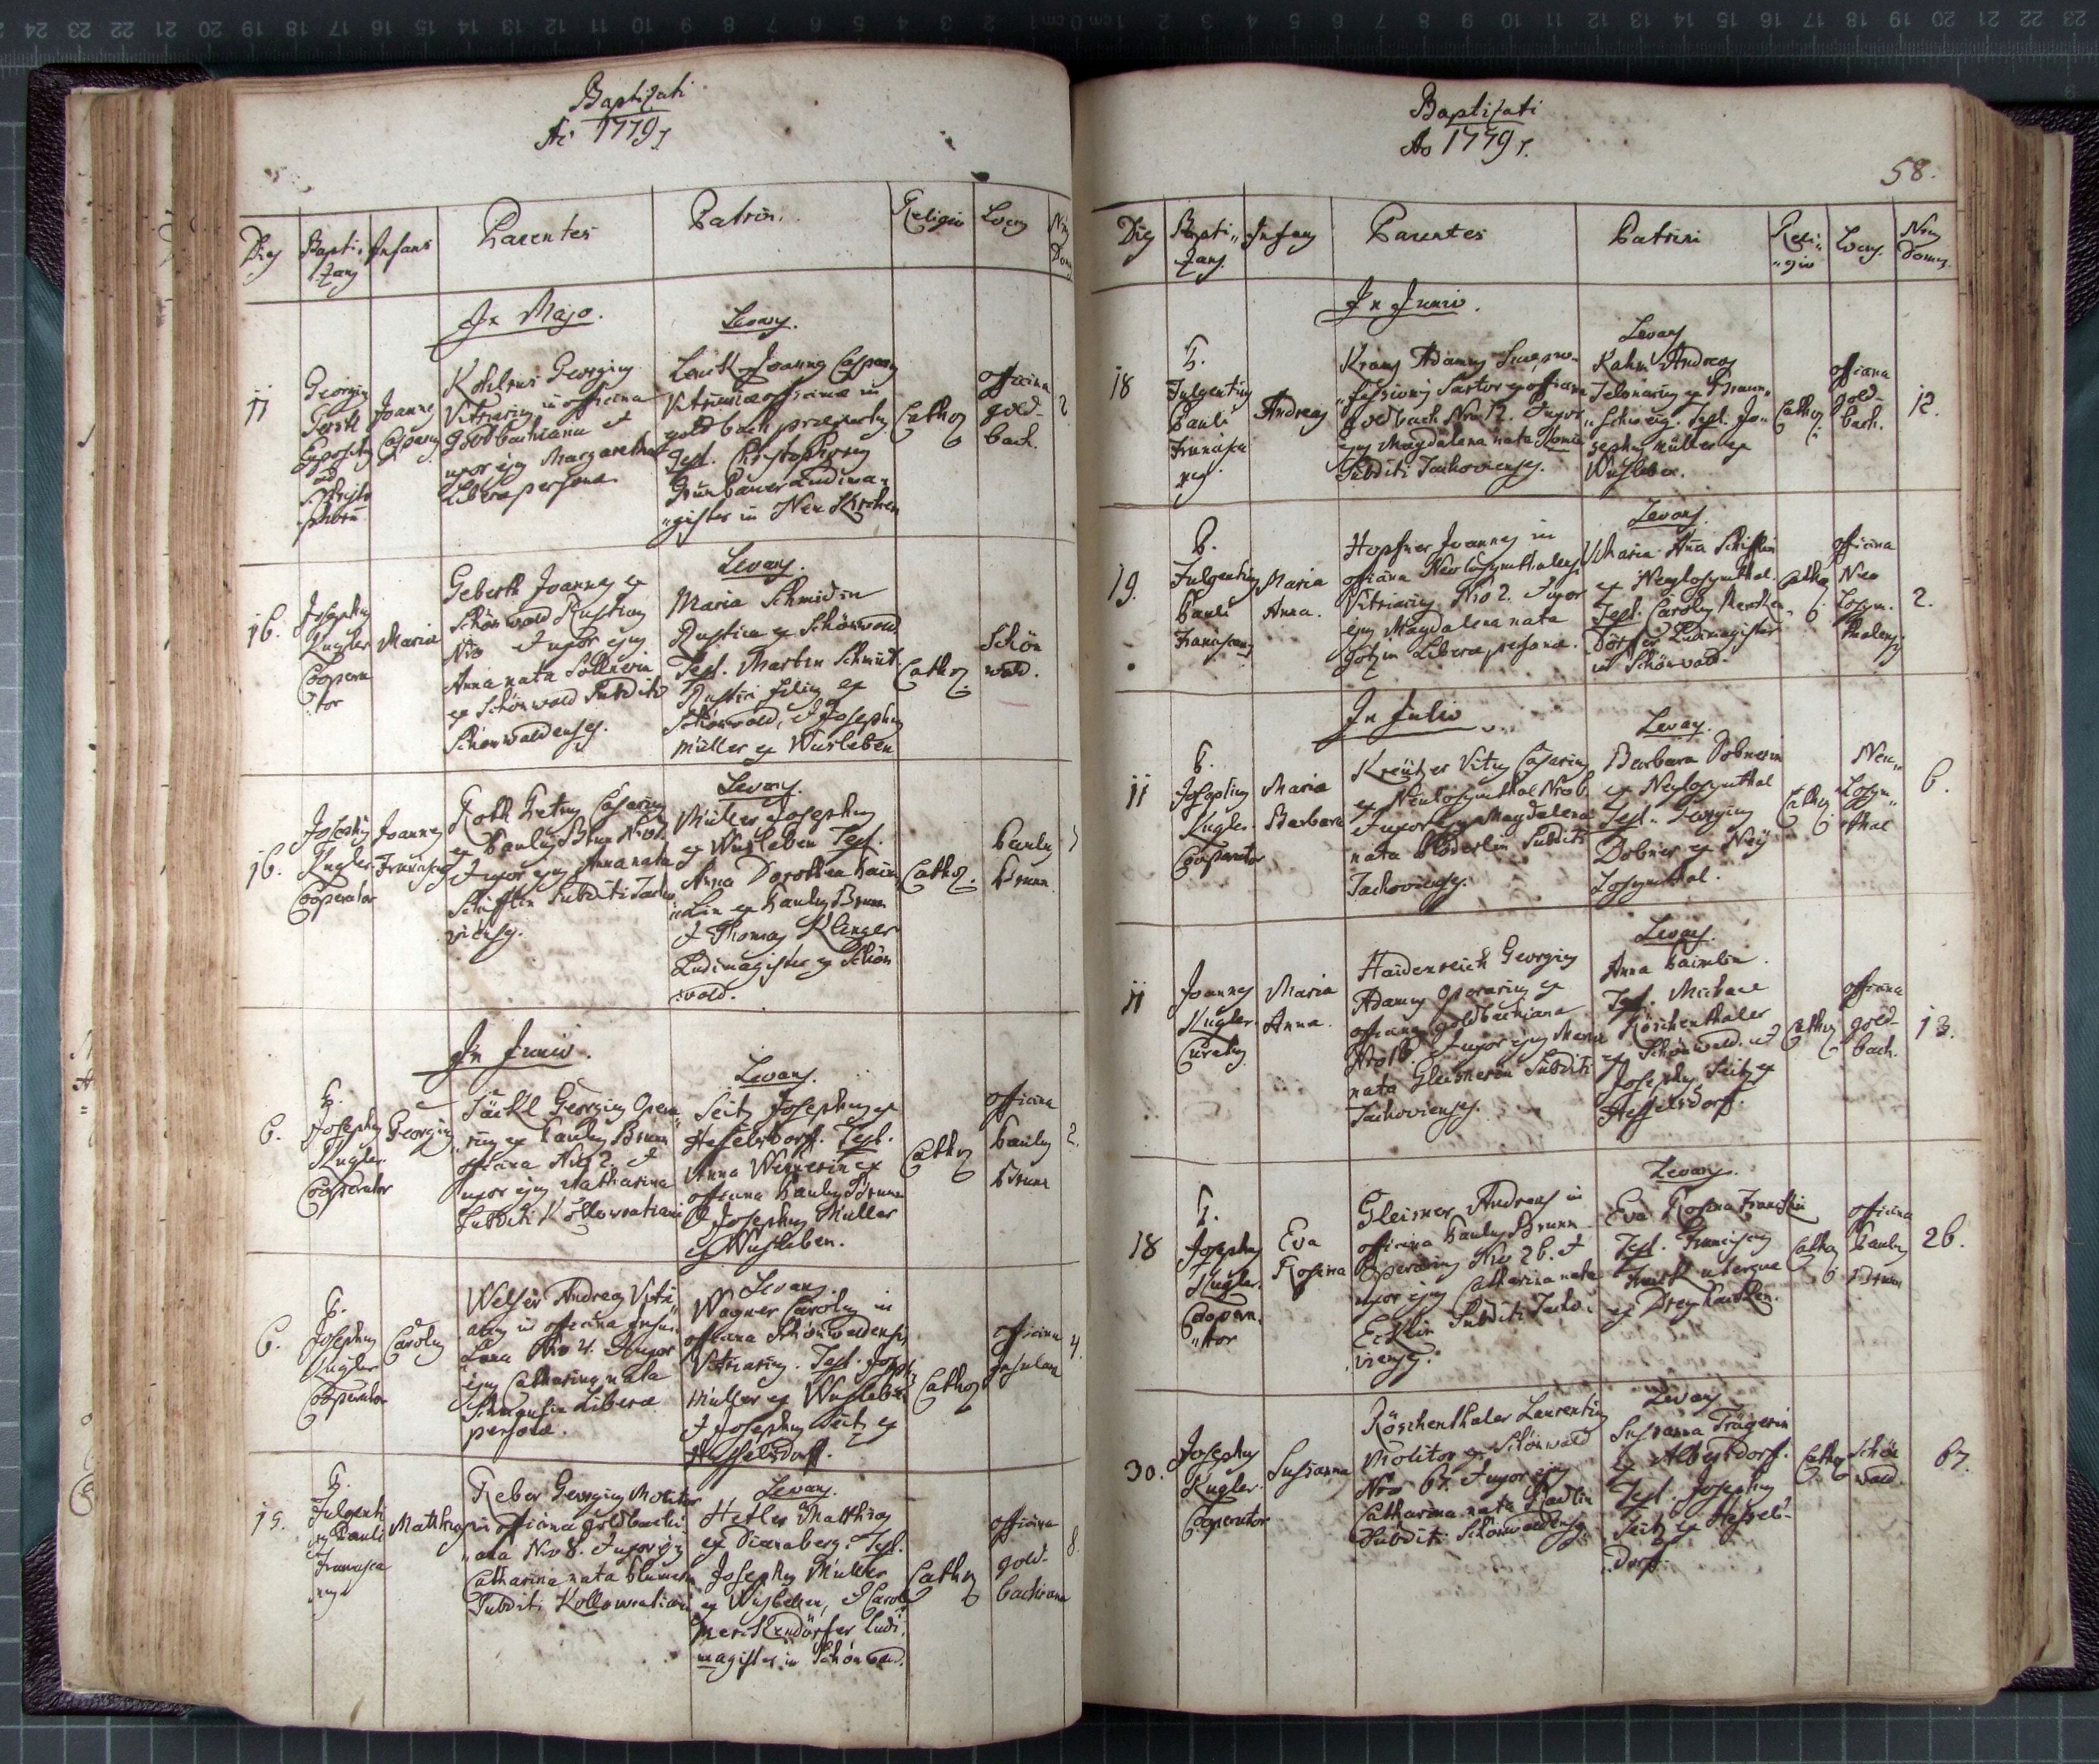 Baptizati
Ao 1779.
Dies
Baptizans
Infans
Parentes
Patrini
Religio
Locus
Nrus Domus
In Majo.
11
Georgius
Joannes
Casparus
Georgius
Vitriarius in officina
Goldbachiana et
uxor ejus Margaretha
Liberae personae
Levans.
Joannes Casparus
Goldbach
Test. Christophorus
Ludima-
gister in Neu Kirchen
Cathol.
officina
gold-
bach.
2
16.
Josephus
Kugler
Coopera
tor
Maria
Geberth Joannes ex
Schönwald Rusticus
Nro et uxor ejus
Anna nata
ex Schönwald Subditi
Schönwaldenses.
Levans.
Maria Schmidin
Rustica ex Schönwald
Test. Martin Schmid
Rustici filius ex
Schönwald, et Josephus
Müller ex Wusleben
Cathol.
Schön
wald.
16.
Josephus
Kugler
Cooperator
Joannes
Franciscus
Roth
ex Paulus Brun
et uxor ejus Anna nata
Schifflin Subditi Tacho
vienses.
Levans.
Müller Josephus
ex Wusleben Test.
Anna Dorothea
lin ex Paulus Brunn
et Thomas Klinger
Ludimagister ex Schön
wald.
Cathol.
Paulus
Brunn
In Junio.
6.
P.
Josephus
Kugler
Cooperator
Georgius
Jäckl Georgius Opera
rius ex Paulus Brunn
officina Nro 2. et
uxor ejus Catharina
Subditi Kollowratiani
Levans.
Seitz Josephus ex
Hesselsdorff. Test.
Anna Wernerin ex
officina Paulus Brunn
et Josephus Müller
ex Wusleben.
Cathol.
officina
Paulus
Brunn
2.
6.
P.
Josephus
Kugler
Cooperator
Carolus
Welser Andreas Vitri
arius in officina Insu
lana Nro 4. et uxor
ejus Catharina nata
Liberae
personae.
Levans.
Wagner Carolus in
officina Schönwaldensi
Vitriarius. Test. Joseph
Müller ex Wusleben
et Josephus Seitz ex
Hesselsdorff.
Cathol.
officina
Insulana
4.
15.
P.
Fulgenti
us Pauli
Francisca
nus
Matthias
Reber Georgius Molitor
in officina goldbachi
ana Nro 8. et uxor ejus
Catharina nata Blumerin
Subditi Kollowratiani
Levans.
Hetler Matthias
ex Dianaberg. Test.
Josephus Müller
ex Wusleben, et Carolus
Merckendörfer Ludi
magister in Schönwald.
Cathol.
officina
gold-
bachiana
8.
Baptizati
Ao 1779.
58.
Dies
Baptizans
Infans
Parentes
Patrini
Religio
Locus
Nrus Domus
In Junio.
18
P.
Fulgentius
Pauli
Francisca
nus
Andreas
Kraus Adamus
Sartor ex officina
Goldbach Nro 12. et uxor
ejus Magdalena nata
Subditi Tachovienses.
Levans
Rahm Andreas
Telonarius ex Braun
schweig. Test. Jo
sephus Müller ex
Wusleben.
Cathol.
officina
gold-
bach.
12.
19.
P.
Fulgentius
Pauli
Franciscanus
Maria
Anna.
Hopfner Joannes in
officina Neolosymthalensi
Vitriarius Nro 2. et uxor
ejus Magdalena nata
Götzin Liberae personae.
Levans.
Maria Anna Schifflin
ex Neylosymthal.
Test. Carolus Mercken
dörffer Ludimagister
in Schönwald.
Cathol.
officina
Neo
Losym-
thalensis
2.
In Julio
11
P.
Josephus
Kugler
Cooperator
Maria
Barbara
Kreützer Vitus Casarius
ex Neulosymthal Nro 6
et uxor ejus Magdalena
nata Subditi
Tachovienses.
Levans.
Barbara Dobnerin
ex Neylosymthal
Test. Georgius
Dobner ex Ney
Losymthal.
Cathol.
Neu
Losym
thal
6.
11
Joannes
Kugler
Curatus
Maria
Anna.
Haidenreich Georgius
Adamus Operarius ex
officina goldbachiana
Nro 13. et uxor ejus Maria
nata Gleisnerin Subditi
Tachovienses.
Levans.
Anna
Test. Michael
Röschenthaler
ex Schönwald. et
Josephus Seitz ex
Hesselsdorff.
Cathol.
officina
gold-
bach.
13.
18
P.
Josephus
Kugler
Coopera
tor
Eva
Rosina
Gleisner Andreas in
officina Paulus Brunn
Operarius Nro 26. et
uxor ejus Catharina nata
Ecklin Subditi Tacho
vienses.
Levans.
Eva Rosina
Test. Franciscus
uterque
ex Drey Hacken.
Cathol.
officina
Paulus
Brunn
26.
30.
Josephus
Kugler
Cooperator
Susanna
Röschenthaler Laurentius
Molitor ex Schönwald
Nro 67. et uxor ejus
Catharina nata Radlin
Subditi Schönwaldenses.
Levans
Susanna Trägerin
ex Albersdorf.
Test. Josephus
Seitz ex Hessels-
dorff.
Cathol.
Schön
wald.
67.